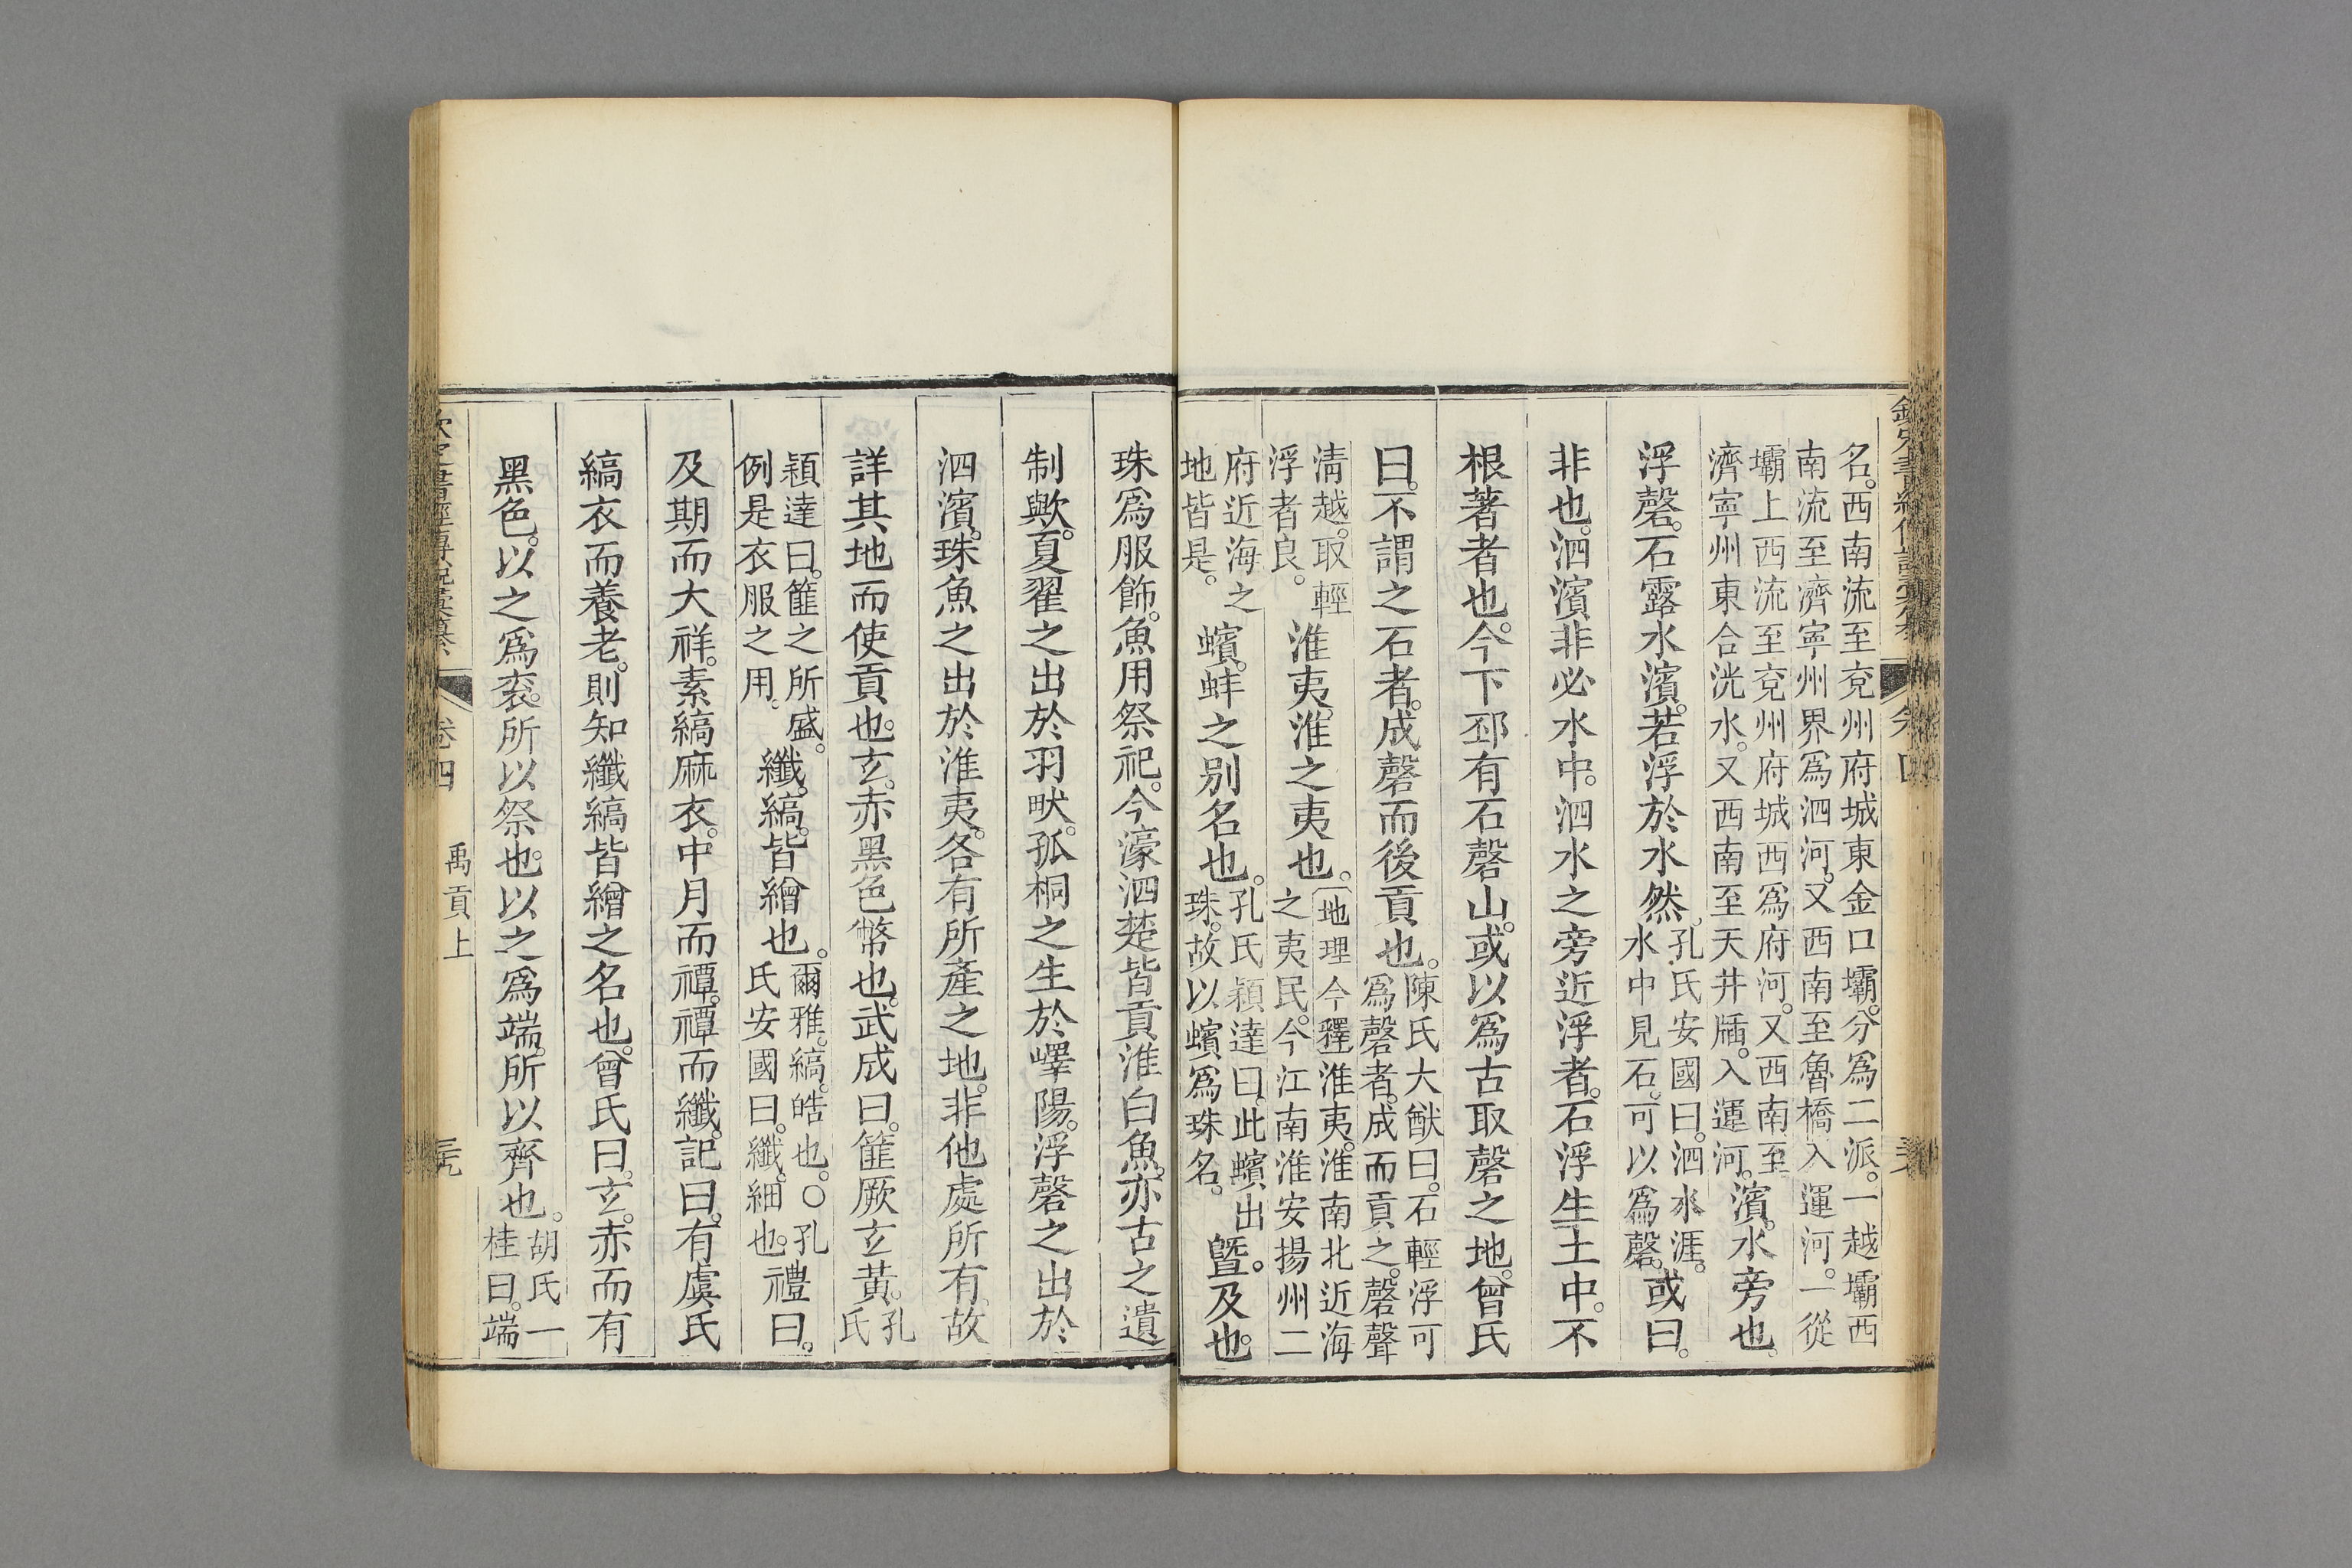 名。西南流至兗州府城東金口壩。分爲二派。一越壩西
南流至濟寧州界爲泗河。又西南至魯橋入運河。一從
壩上西流至兗州府城西爲府河。又西南至
濟寧州東合洸水。又西南至天井牐。入運河。
濱。水旁也。
浮磬。石露水濱。若浮於水然。
孔氏安國曰。泗水涯。
水中見石。可以爲磬。
或曰。
非也。泗濱非必水中。泗水之旁近浮者。石浮生土中。不
根著者也。今下邳有石磬山。或以爲古取磬之地。曾氏
曰。不謂之石者。成磬而後貢也。
陳氏大猷曰。石輕浮可
爲磬者。成而貢之。磬聲
淸越。取輕
浮者良。
淮夷。淮之夷也。
地理今釋淮夷。淮南北近海
之夷民。今江南淮安揚州二
府近海之
地皆是。
蠙。蚌之別名也。
孔氏穎達曰。此蠙出
珠。故以蠙爲珠名。
曁。及也。
珠爲服飾。魚用祭祀。今濠泗楚皆貢淮白魚。亦古之遺
制歟。夏翟之出於羽畎。孤桐之生於嶧陽。浮磬之出於
泗濱。珠魚之出於淮夷。各有所產之地。非他處所有。故
詳其地而使貢也。玄。赤黑色幣也。武成曰。篚厥玄黃。
孔
氏
穎達曰。篚之所盛。
例是衣服之用。
纖。縞。皆繒也。
爾雅。縞。皓也。○孔
氏安國曰。纖。細也。
禮曰。
及期而大祥。素縞麻衣。中月而禫。禫而纖。記曰。有虞氏
縞衣而養老。則知纖縞皆繒之名也。曾氏曰。玄。赤而有
黑色。以之爲袞。所以祭也。以之爲端。所以齊也。
胡氏一
桂曰。端
卷四
禹貢上